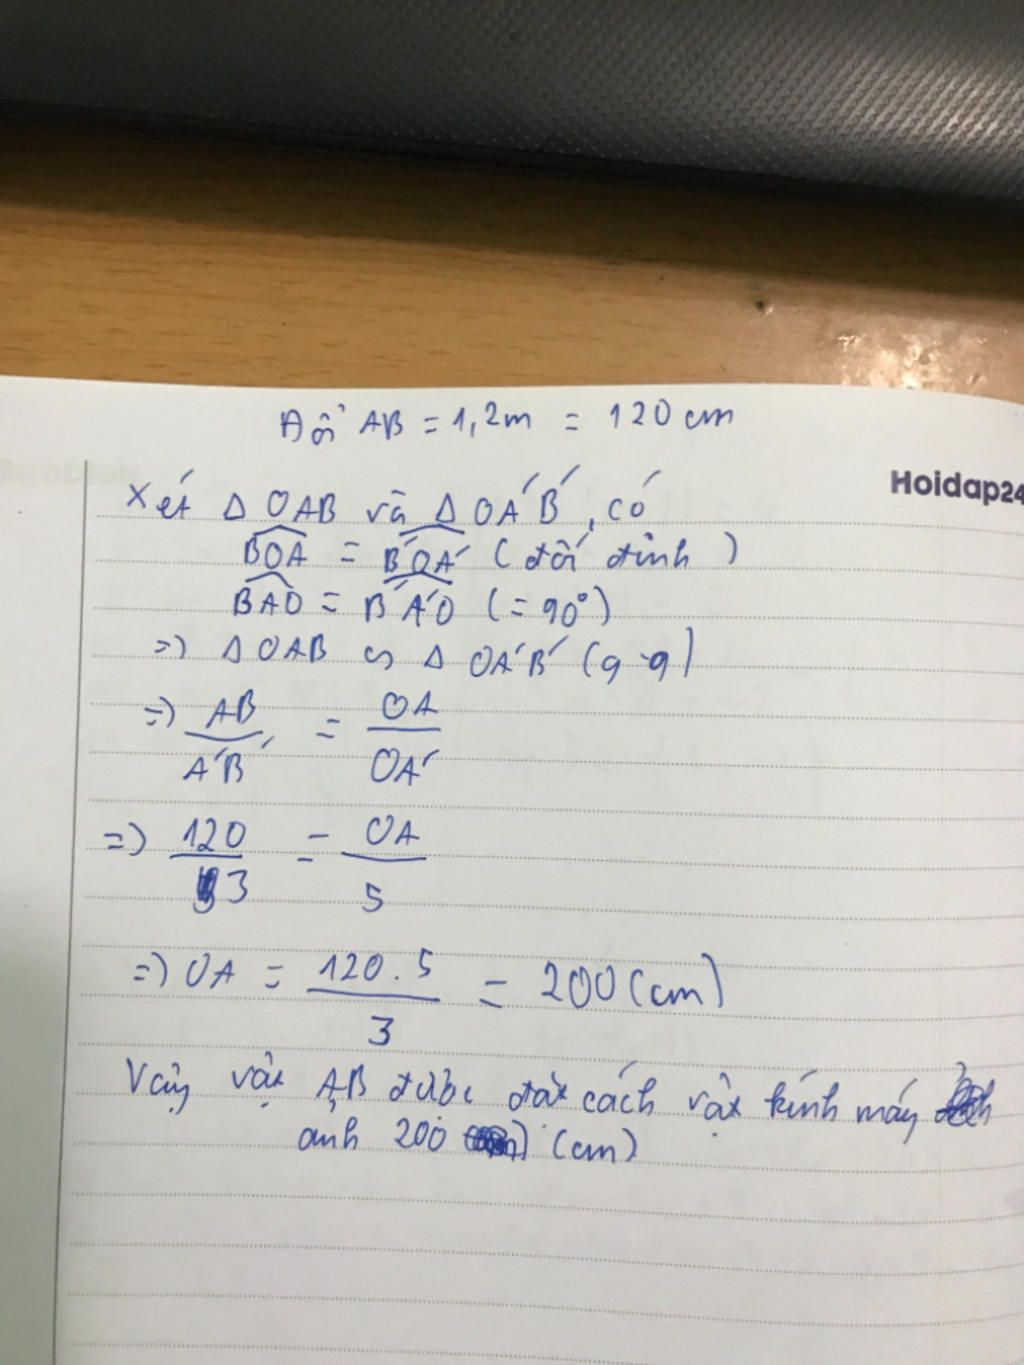 Đổi AB = 1,2m = 120 cm
Hoidap24
Xét Δ OAB và Δ OA'B', có
BOA = B'OA' (đối đỉnh)
BAO = B'A'O (= 90°)
=> Δ OAB ∽ Δ OA'B' (g-g)
=> AB/A'B' = OA/OA'
=> 120/3 = OA/5
=> OA = 120.5/3 = 200 (cm)
Vậy vật AB được đặt cách vật kính máy
ảnh 200 (cm)